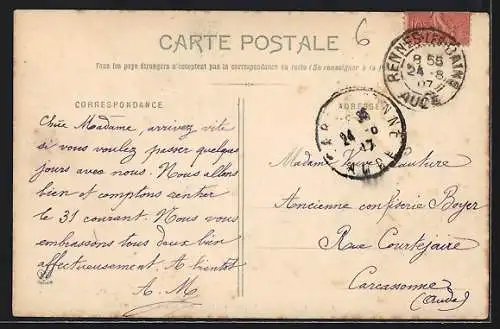 6
CARTE POSTALE
Tous les pays étrangers n'acceptent pas la correspondance au recto (Se renseigner à la
RENNES-LES-BAINS
8 55
24 -8
07
AUDE
CORRESPONDANCE
ADRESSE
24 -8
07
AUDE
Chère Madame, arrivez vite
si vous voulez passer quelques
jours avec nous. Nous allons
bien et comptons rentrer
le 31 courant. Nous vous
embrassons tous deux bien
affectueusement. A bientôt
A. M
Madame Veuve Couture
Ancienne confiserie Boyer
Rue Courtejaire
Carcassonne
(Aude)